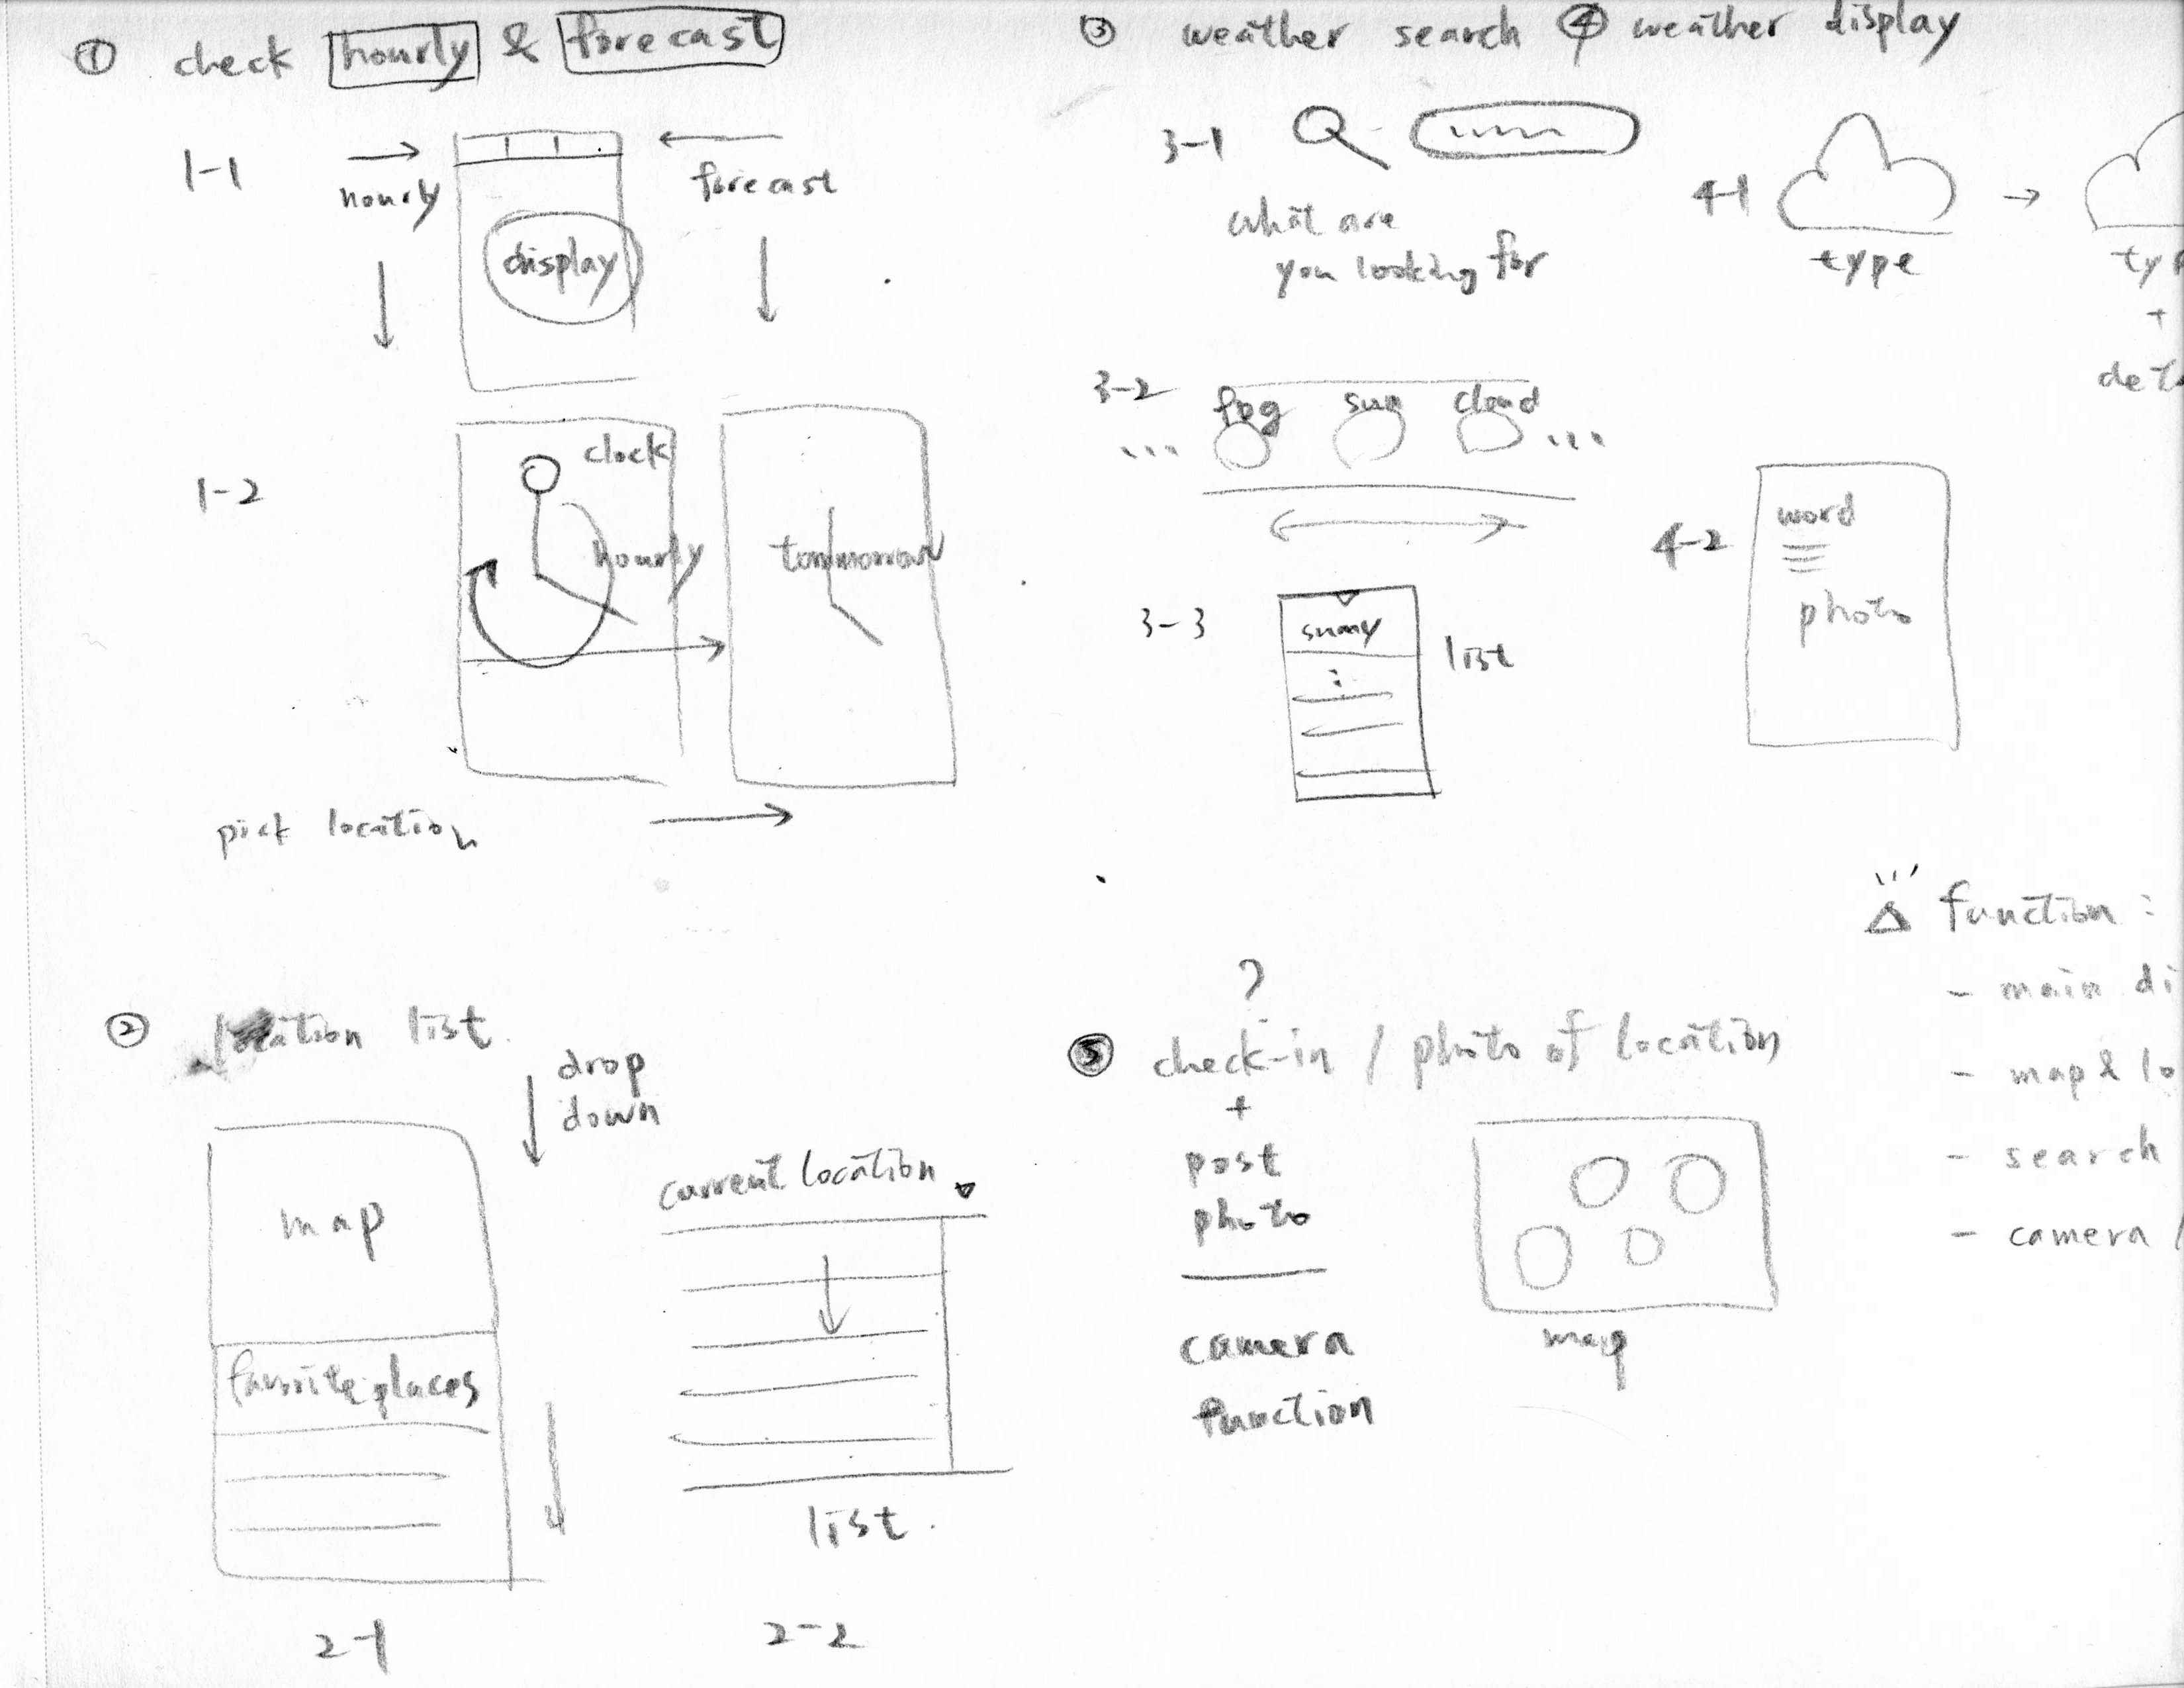 ① check hourly & forecast
1-1
hourly
forecast
display
1-2
clock
hourly
tommorrow
pick location
② location list.
drop
down
map
favorite places
current location
list.
2-1
2-2
③ weather search ④ weather display
3-1
what are
you looking for
4-1
type
typ
+
det
3-2
fog sun cloud
... ...
4-2
word
photo
3-3
sunny
list
?
⑤ check-in / photo of location
+
post
photo
camera
function
map
function :
- main di
- map & lo
- search
- camera /